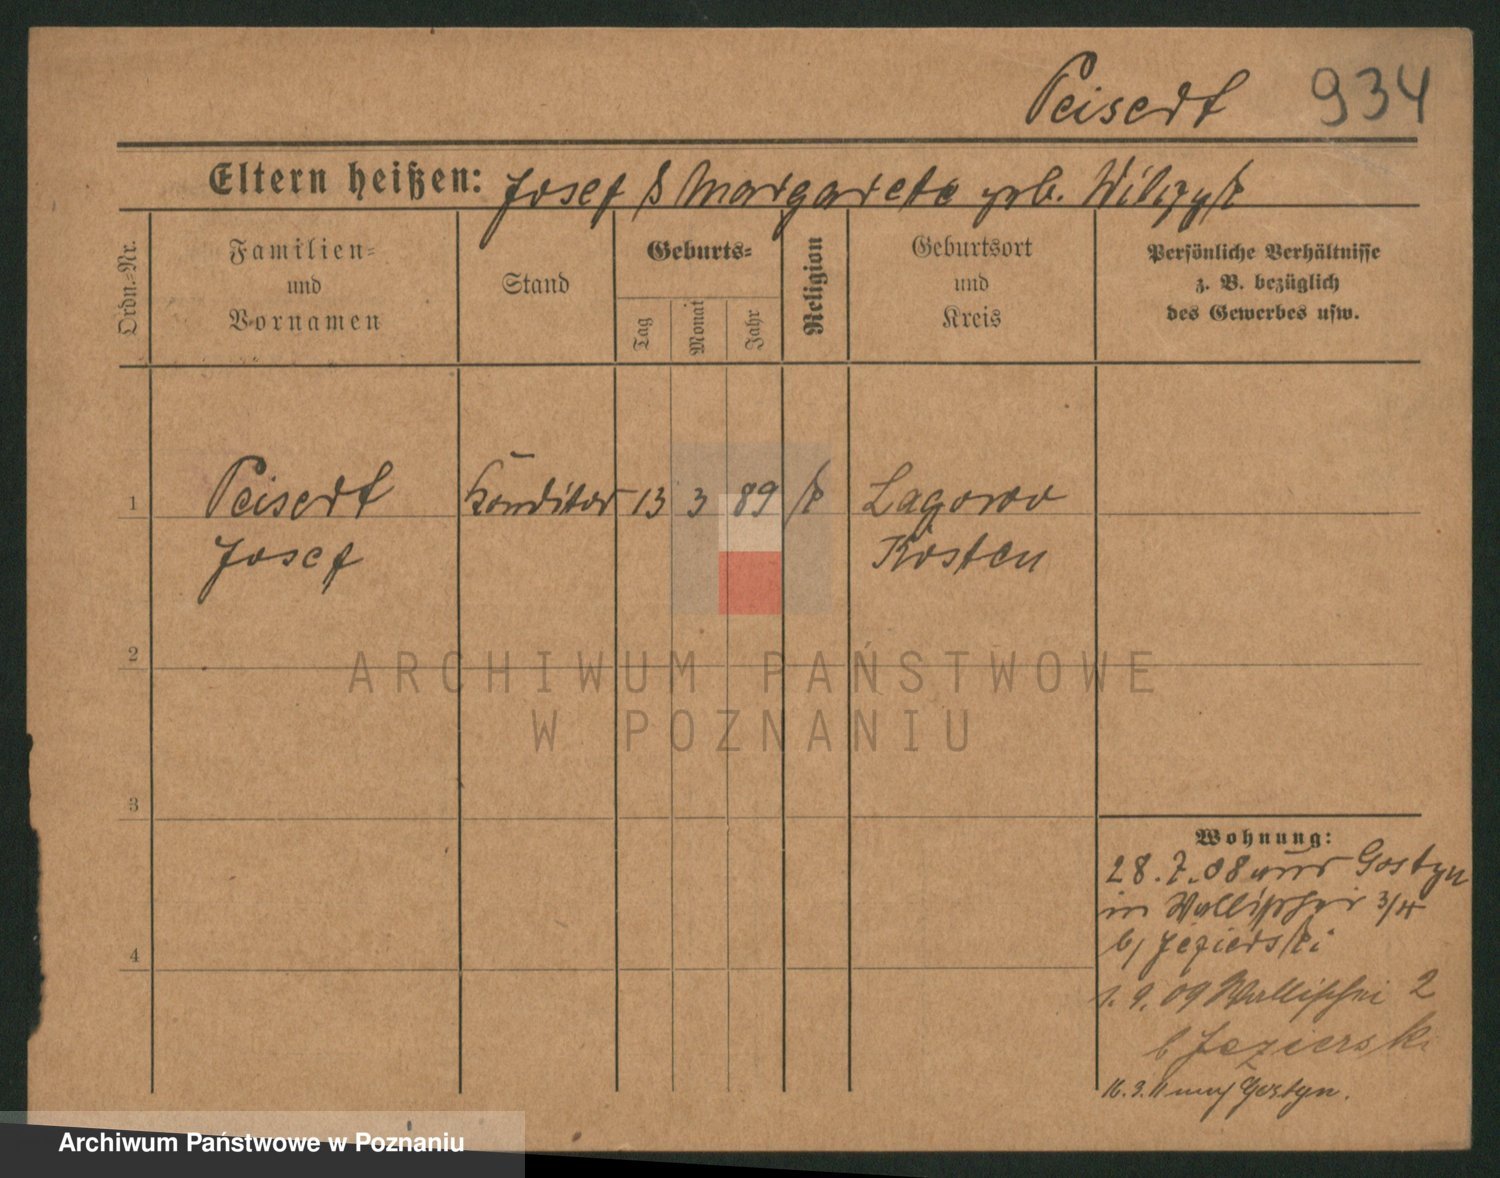 Peisert 934
Eltern heißen: Josef & Margarete geb.
Ordn.-Nr.
Familien-
und
Vornamen
Stand
Geburts-
Tag
Monat
Jahr
Religion
Geburtsort
und
Kreis
Persönliche Verhältnisse
z. B. bezüglich
des Gewerbes usw.
1 Peisert Konditor 13 3 89 k Lagowo
Josef Kosten
2
ARCHIWUM PAŃSTWOWE
W POZNANIU
3
Wohnung:
28.7.08 aus Gostyn
in Wallischei 3/4
b/ Jezierski
4
1.9.09 Wallischei 2
b Jezierski
16.3.11 nach Gostyn.
Archiwum Państwowe w Poznaniu